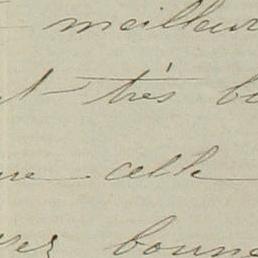 meilleur
t très bi
ne celle
vez bonne